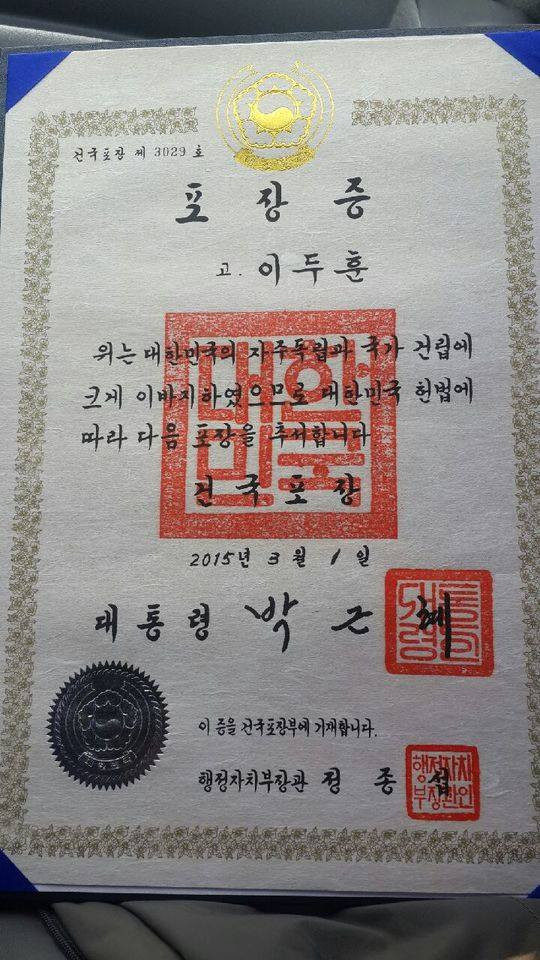 건국포장 제 3029 호
포장증
고. 이두훈
위는 대한민국의 자주독립과 국가 건립에
크게 이바지하였으므로 대한민국 헌법에
따라 다음 포장을 추서합니다
건국포장
2015년 3월 1일
대통령 박근혜
이 증을 건국포장부에 기재합니다.
행정자치부장관 정종섭
대한민국
대통령
행정자치부장관인